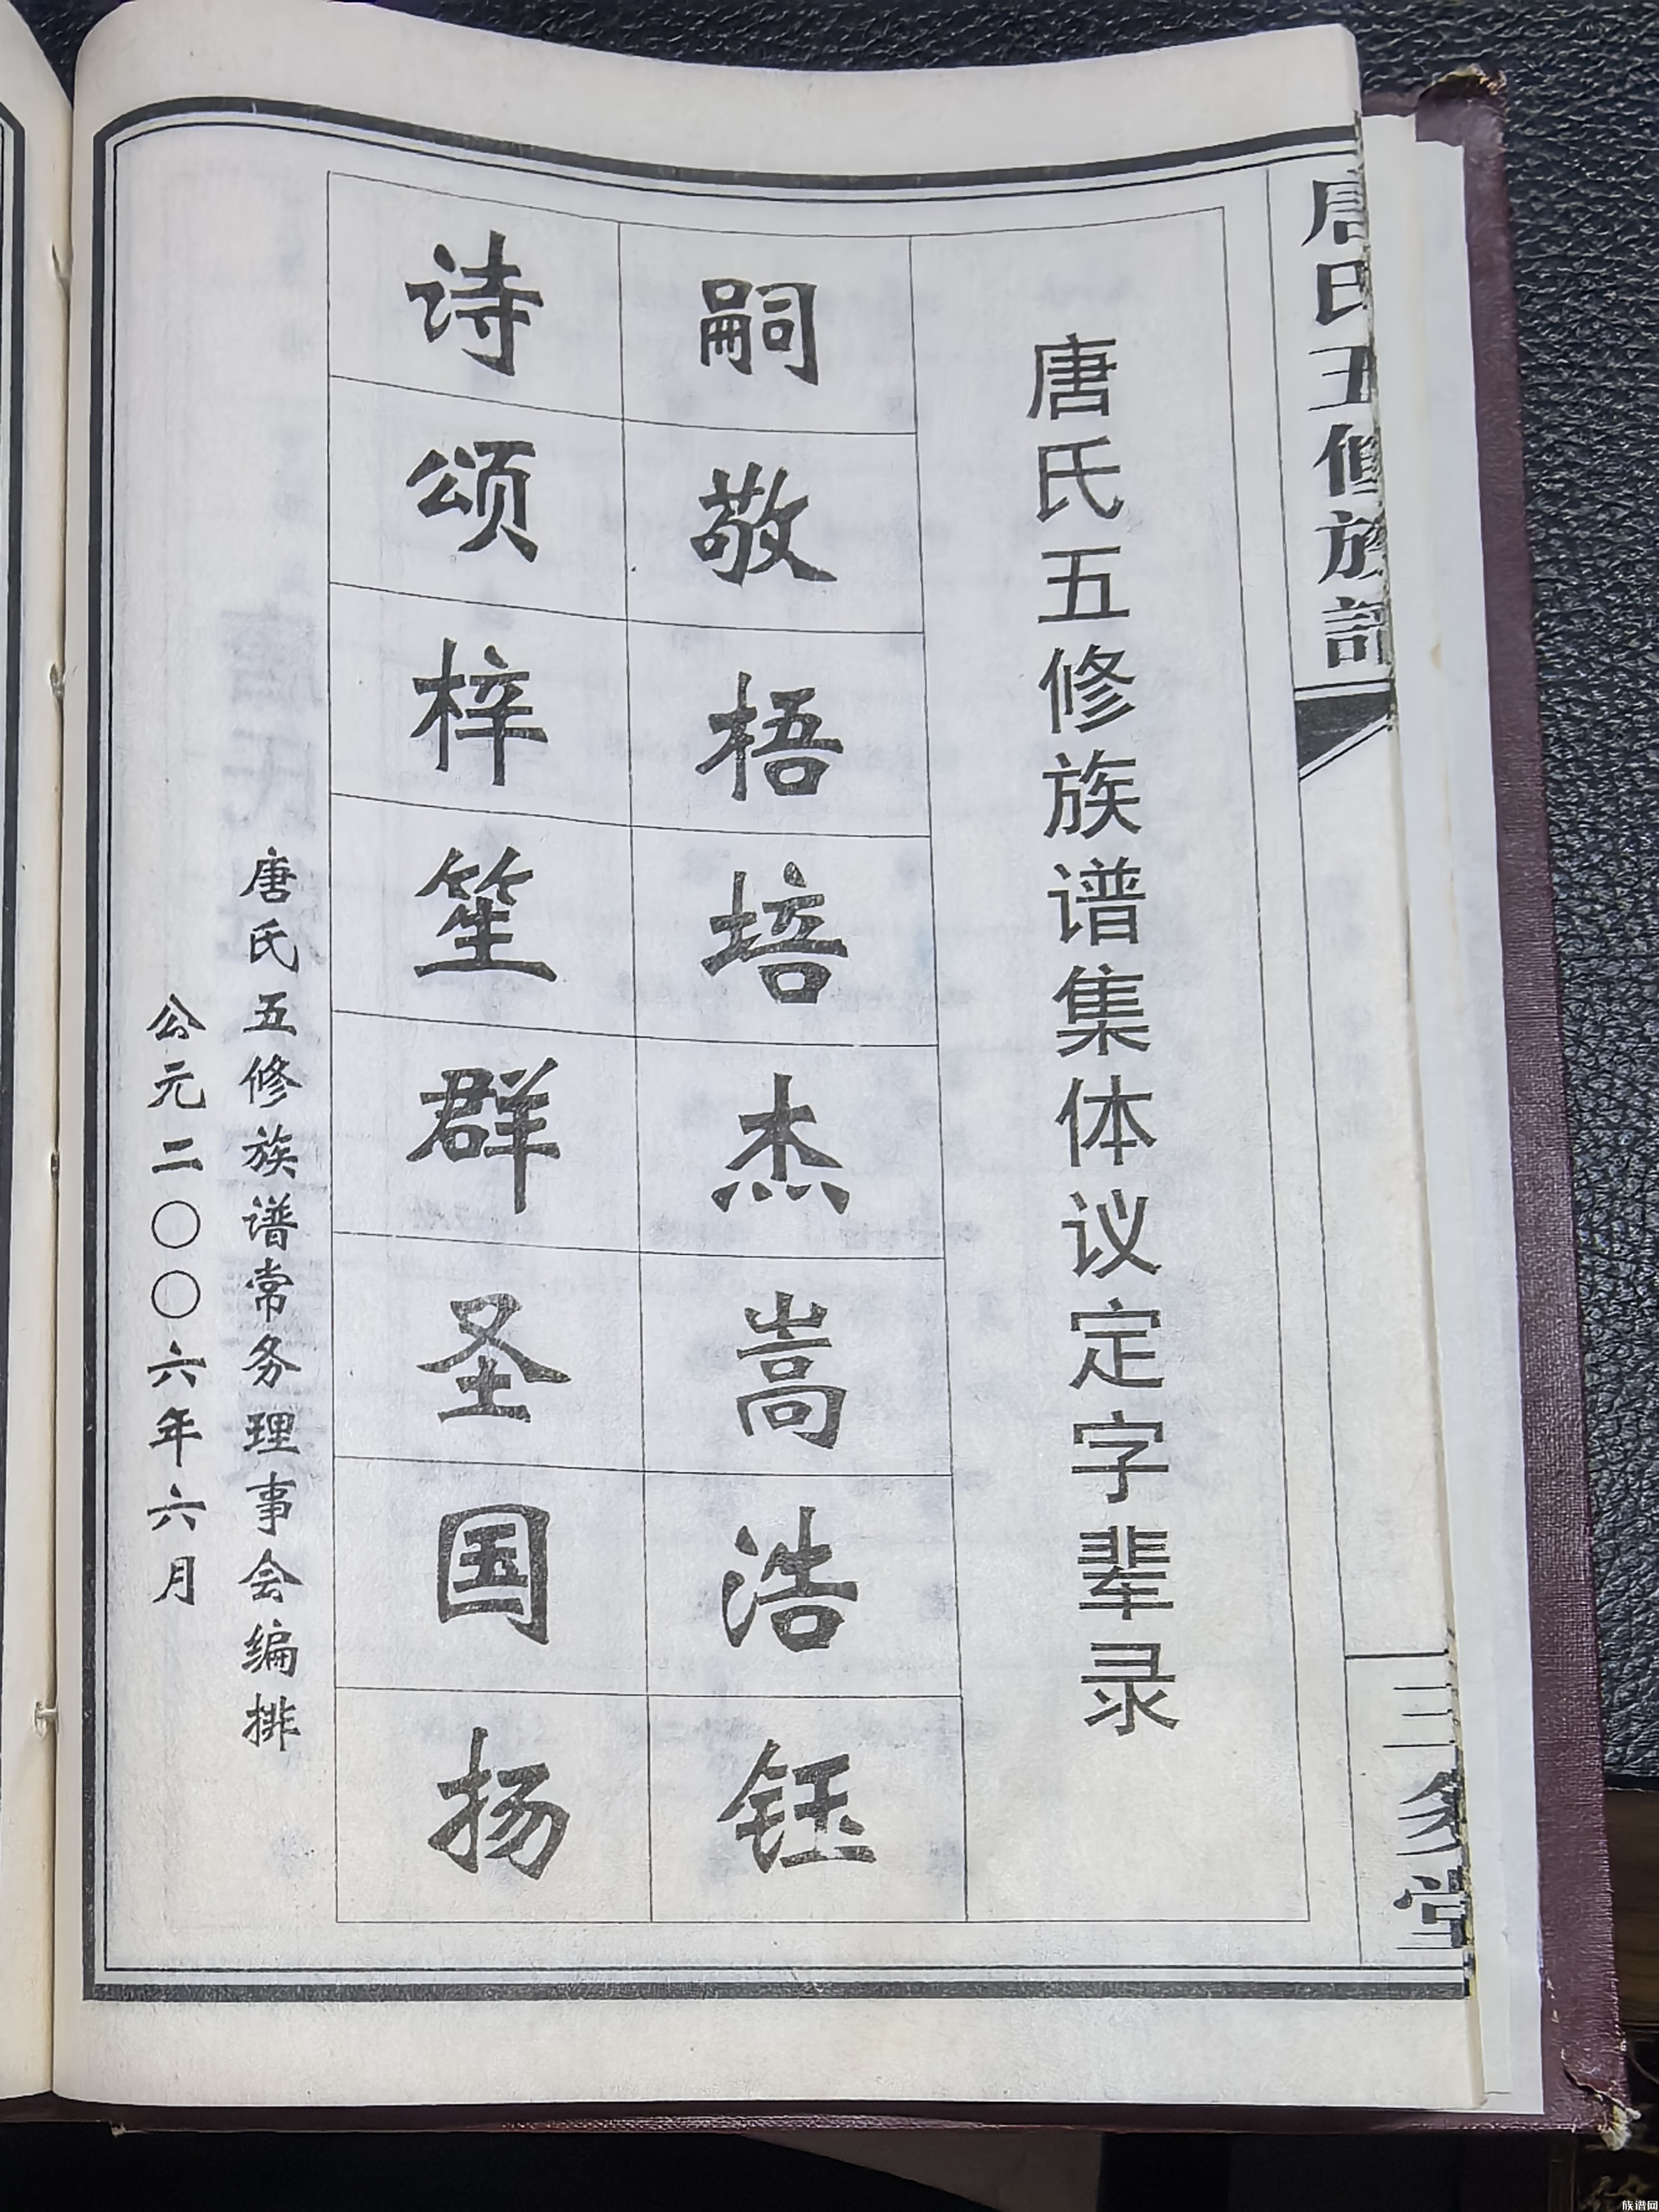 唐氏五修族谱
三多堂
唐氏五修族谱集体议定字辈录
嗣敬梧培杰嵩浩钰
诗颂梓笙群圣国扬
唐氏五修族谱常务理事会编排
公元二〇〇六年六月
族谱网